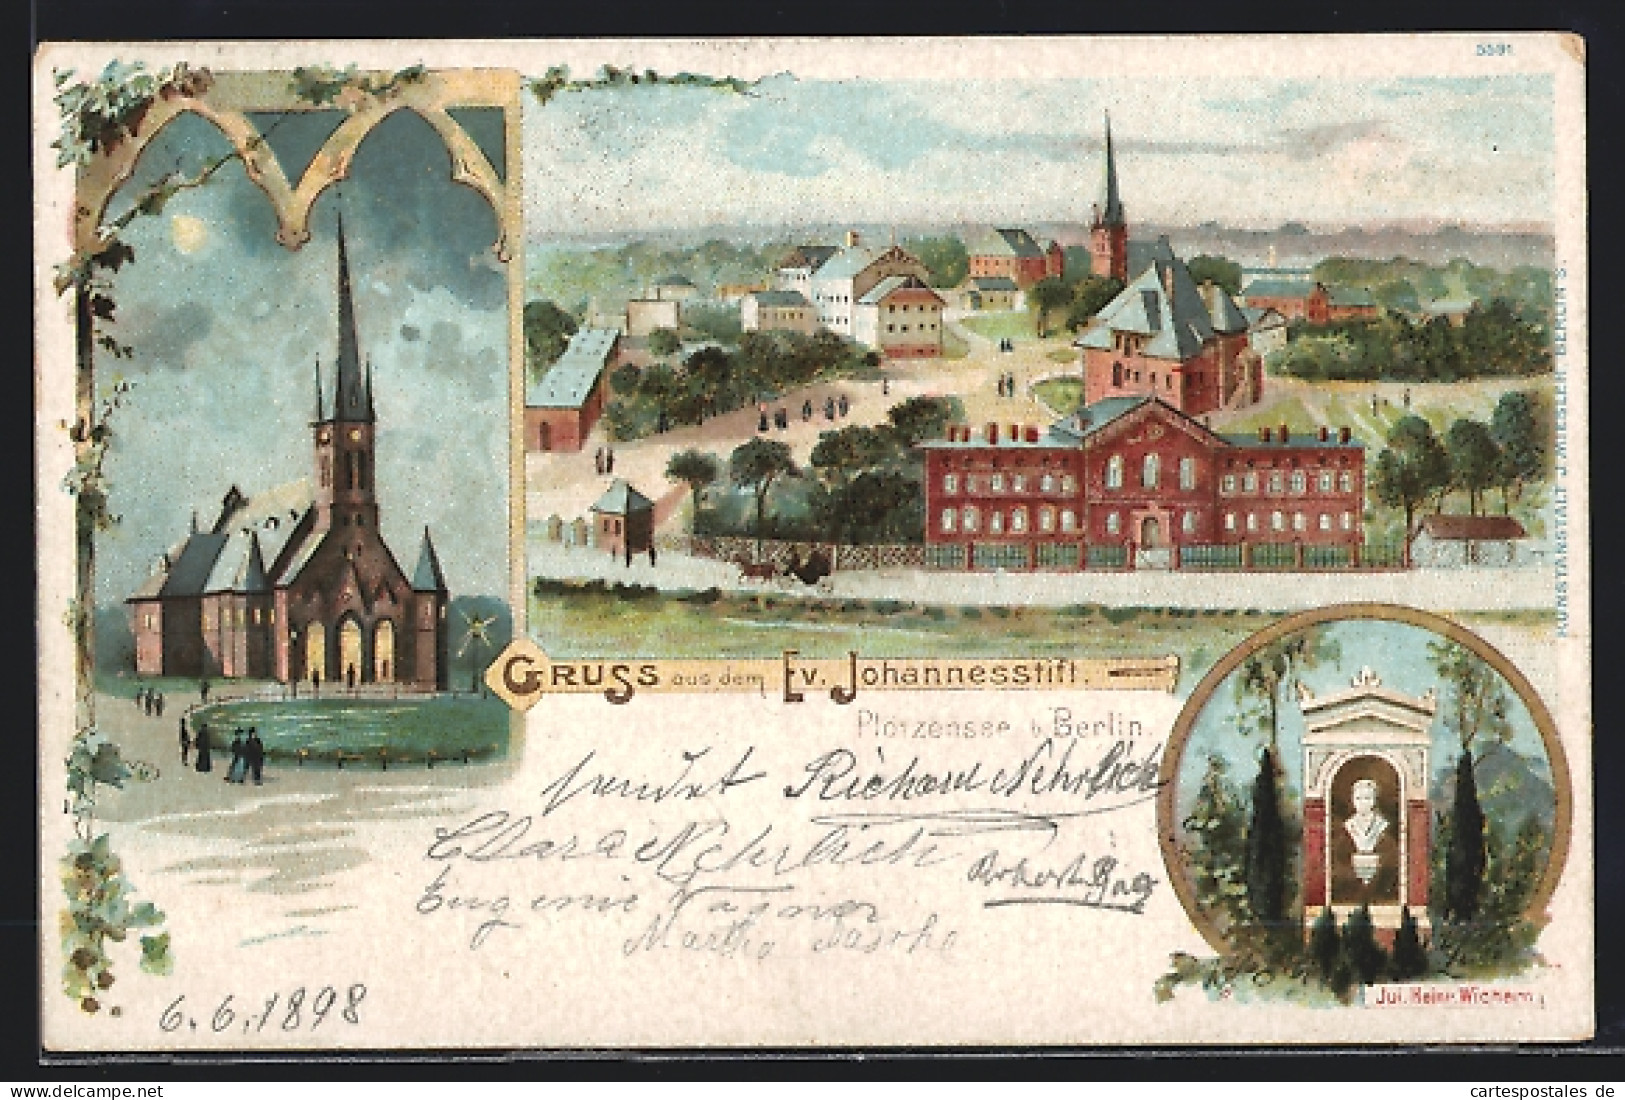 5591
KUNSTANSTALT J. MIESLER BERLIN S.
GRUSS aus dem EV. JOHANNESSTIFT.
Plötzensee b. Berlin.
sendet Richard Nehrlich
Clara Nehrlich
Eugenie Wagner
Martha
Jul. Heinr. Wichern
6.6.1898
cartespostales de